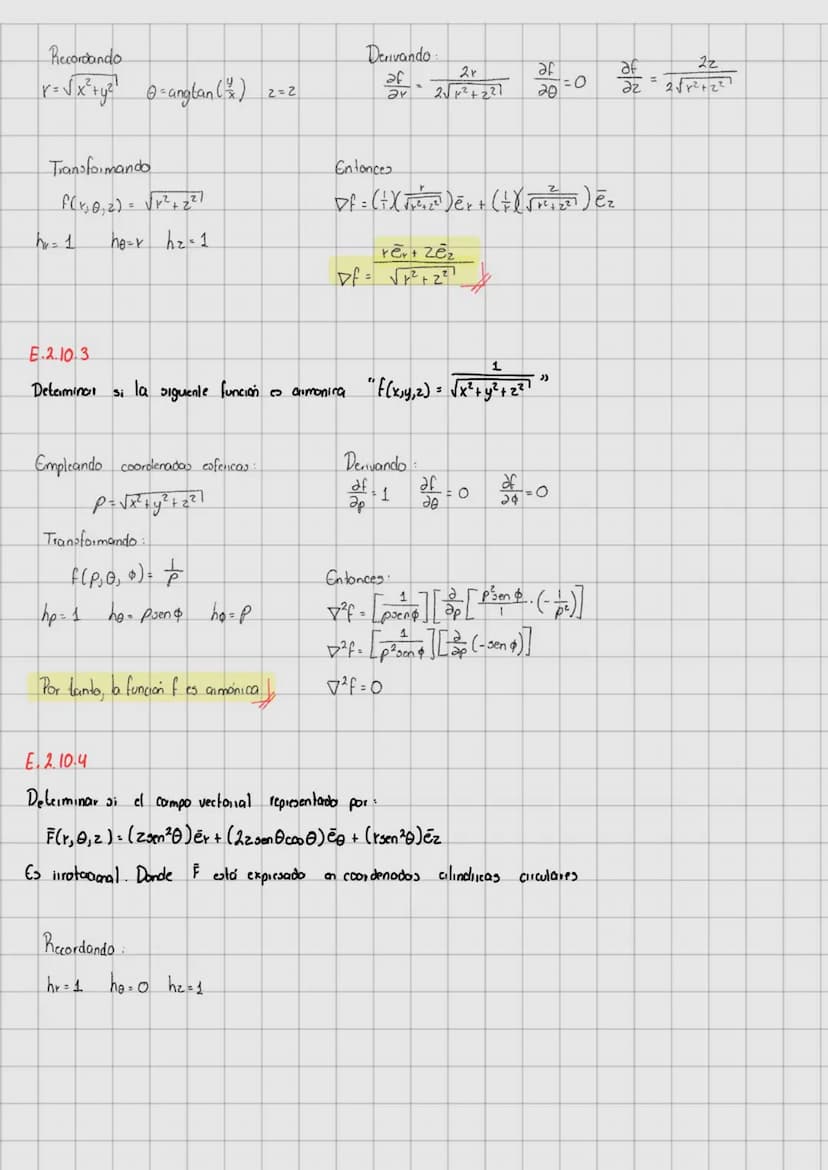 Recordando
r = √(x²+y²)   θ = angtan(y/x)   z=z
Derivando:
∂f/∂r = 2r/(2√(r²+z²))   ∂f/∂θ = 0   ∂f/∂z = 2z/(2√(r²+z²))
Transformando
f(r,θ,z) = √(r²+z²)
hr = 1   hθ=r   hz = 1
Entonces
∇f = (1/1)(r/√(r²+z²))ēr + (1/1)(z/√(r²+z²))ēz
∇f = (rēr + zēz)/√(r²+z²)
E.2.10.3
Determinar si la siguiente función es armonica "f(x,y,z) = 1/√(x²+y²+z²)"
Empleando coordenadas esfericas:
ρ=√(x²+y²+z²)
Transformando:
f(ρ,θ,ϕ) = 1/ρ
hρ = 1   hθ = ρsenϕ   hϕ = ρ
Por tanto, la función f es armónica
Derivando:
∂f/∂ρ = 1   ∂f/∂θ = 0   ∂f/∂ϕ = 0
Entonces:
∇²f = [1/(ρsenϕ)][∂/∂ρ[ρ²senϕ/1 · (-1/ρ²)]
∇²f = [1/(ρ²senϕ)][∂/∂ρ(-senϕ)]
∇²f = 0
E.2.10.4
Determinar si el campo vectorial representado por:
F̄(r,θ,z) = (zsen²θ)ēr + (2zsenθcosθ)ēθ + (rsen²θ)ēz
Es irrotacional. Donde F̄ está expresado en coordenadas cilindricas circulares
Recordando:
hr = 1   hθ = 0   hz = 1